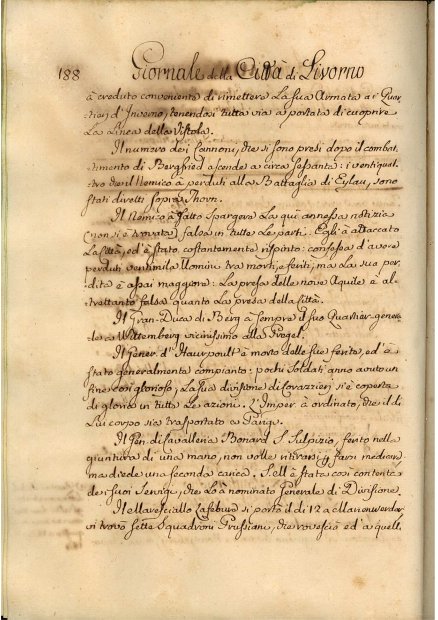 188 Giornale della Città di Livorno
à creduto conveniente di rimettere la sua Armata a i Quar
tieri d'Inverno, tenendosi tutta via a portata di cuoprire
la Linea della Vistola.
Il numero dei Cannoni, che si sono presi dopo il combat
timento di Bergfried ascende a circa sessanta: i ventiquat
tro che il Nemico à perduti alla Battaglia di Eylau, sono
stati diretti sopra Thorn.
Il Nemico à fatto spargere la qui annessa notizia
(non si è trovata) falsa in tutte le parti. Egli à attaccato
la Città, ed è stato costantemente respinto: confessa d'avere
perduti ventimila Uomini tra morti, e feriti, ma la sua per
dita è assai maggiore: la presa delle nove Aquile è al
trettanto falsa quanto la presa della Città.
Il Gran-Duca di Berg à sempre il suo Quartier-genera
le a Wittemberg vicinissimo alla Pregel.
Il Gener. d'Hautpoult è morto delle sue ferite, ed è
stato generalmente compianto: pochi soldati anno avuto un
fine così glorioso; la sua divisione di Corazzieri si è coperta
di gloria in tutte le azioni. L'Imper. à ordinato, che il di
lui corpo sia trasportato a Parigi.
Il Gen. di Cavalleria Bonard S. Sulpizio, ferito nella
giuntura di una mano, non volle ritirarsi p farsi medicare
ma diede una seconda carica. S.M. è stata così contenta
dei suoi servigi, che lo à nominato Generale di Divisione.
Il Maresciallo Lafebure si portò il dì 12 a Marienwerder,
vi trovò sette Squadroni Prussiani, che rovesciò ed a quelli